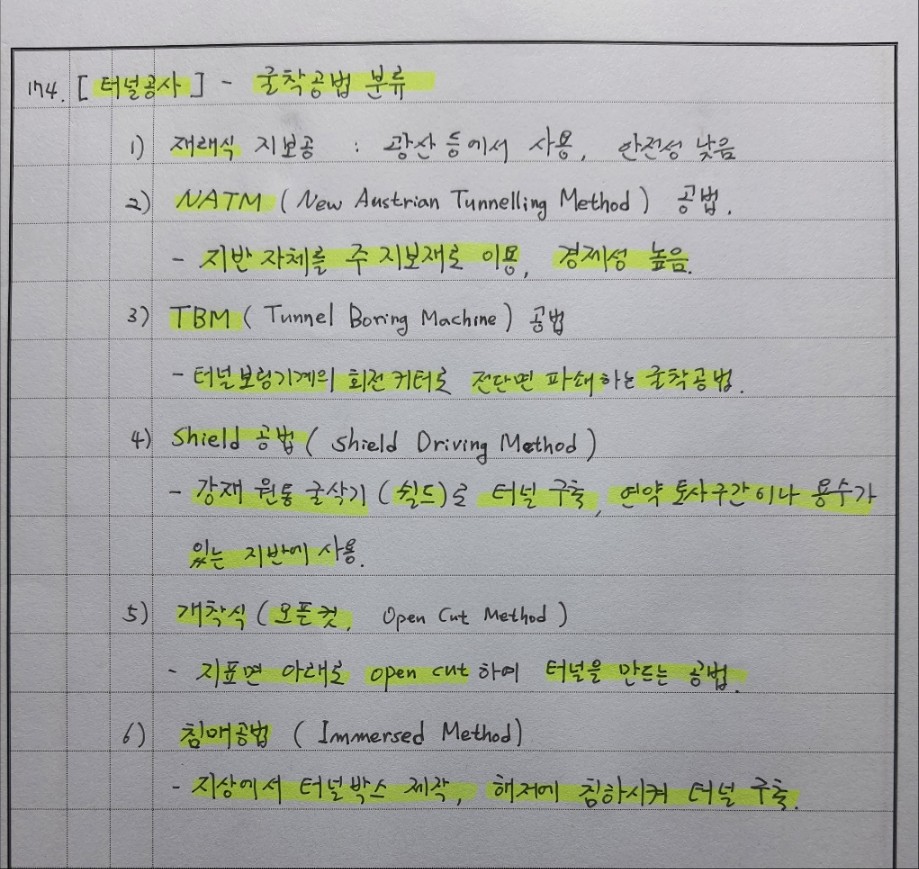 174. [터널공사] - 굴착공법 분류
1) 재래식 지보공 : 광산 등에서 사용, 안전성 낮음
2) NATM (New Austrian Tunnelling Method) 공법.
- 지반 자체를 주 지보재로 이용, 경제성 높음.
3) TBM (Tunnel Boring Machine) 공법
- 터널보링기계의 회전커터로 전단면 파쇄하는 굴착공법.
4) Shield 공법 (shield Driving Method)
- 강재 원통 굴삭기 (쉴드)로 터널 구축, 연약 토사구간이나 용수가
있는 지반에 사용.
5) 개착식 (오픈컷, Open Cut Method)
- 지표면 아래로 open cut 하여 터널을 만드는 공법.
6) 침매공법 (Immersed Method)
- 지상에서 터널박스 제작, 해저에 침하시켜 터널 구축.